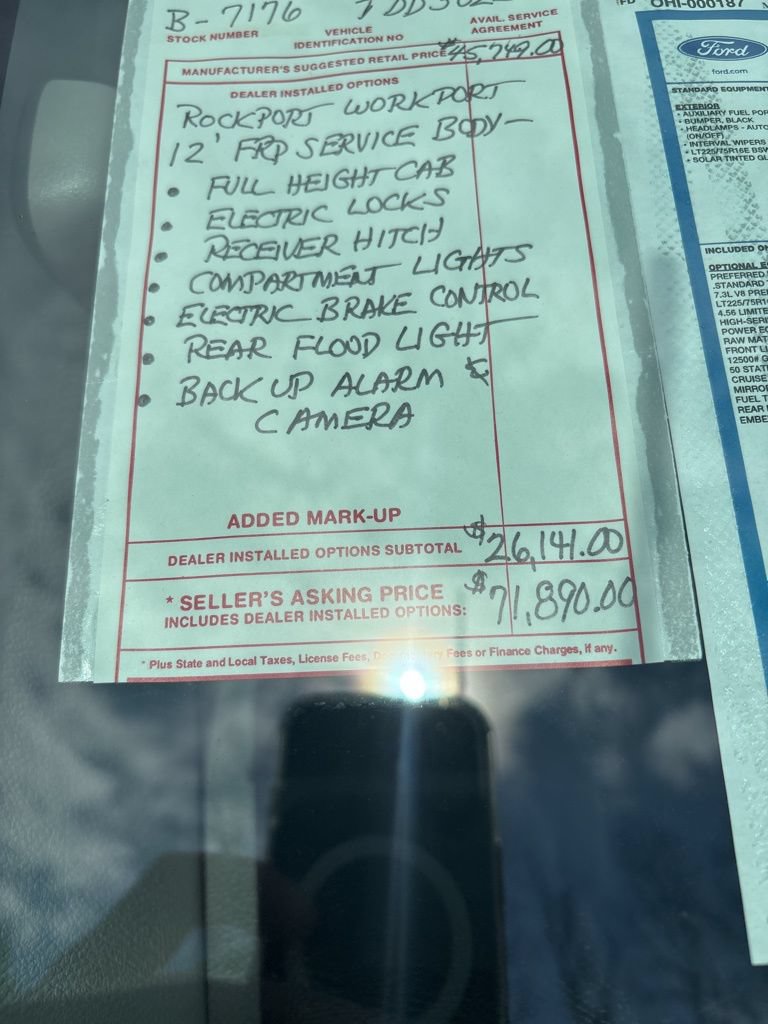 B-7176
STOCK NUMBER
VEHICLE
IDENTIFICATION NO
AVAIL. SERVICE
AGREEMENT
MANUFACTURER'S SUGGESTED RETAIL PRICE $45,749.00
DEALER INSTALLED OPTIONS
ROCKPORT WORKPORT
12' FRP SERVICE BODY-
• FULL HEIGHT CAB
• ELECTRIC LOCKS
• RECEIVER HITCH
• COMPARTMENT LIGHTS
• ELECTRIC BRAKE CONTROL
• REAR FLOOD LIGHT
• BACK UP ALARM &
CAMERA
ADDED MARK-UP
DEALER INSTALLED OPTIONS SUBTOTAL $26,141.00
* SELLER'S ASKING PRICE $71,890.00
INCLUDES DEALER INSTALLED OPTIONS:
* Plus State and Local Taxes, License Fees, Fees or Finance Charges, if any.
OHI-000187
Ford
ford.com
STANDARD EQUIPMENT
EXTERIOR
• AUXILIARY FUEL POR
• BUMPER, BLACK
• HEADLAMPS - AUTO
(ON/OFF)
• INTERVAL WIPERS
• LT225/75R16E BSW
• SOLAR TINTED GL
INCLUDED ON
OPTIONAL E
PREFERRED
.STANDARD
7.3L V8 PRE
LT225/75R1
4.56 LIMITE
HIGH-SERI
POWER EQ
RAW MAT
FRONT LI
12500# G
50 STAT
CRUISE
MIRRO
FUEL T
REAR
EMBE